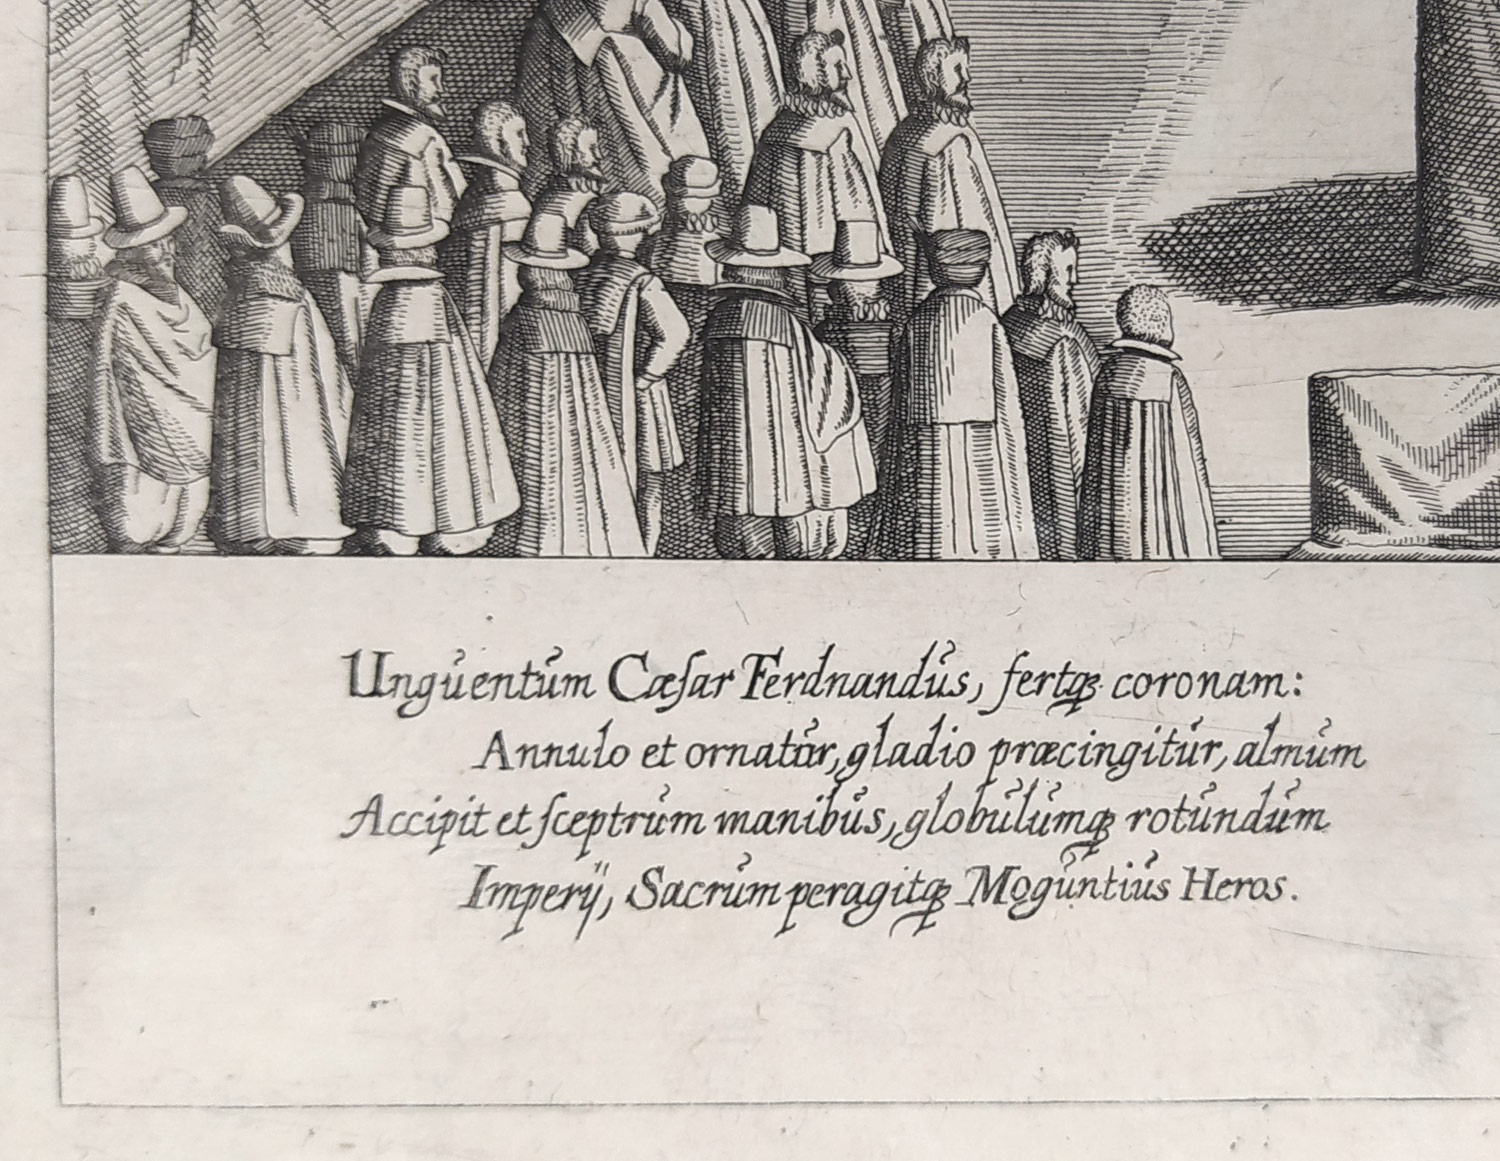 Unguentum Cæſar Ferdnandus, fertqꝫ coronam:
Annulo et ornatur, gladio præcingitur, almum
Accipit et ſceptrum manibus, globulumqꝫ rotundum
Imperij, Sacrum peragitqꝫ Moguntius Heros.